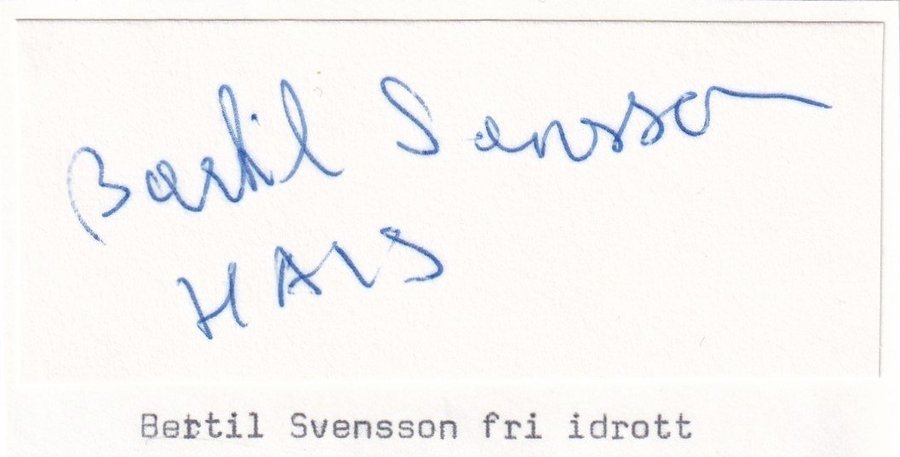 Bertil Svensson
HAIS
Bertil Svensson fri idrott